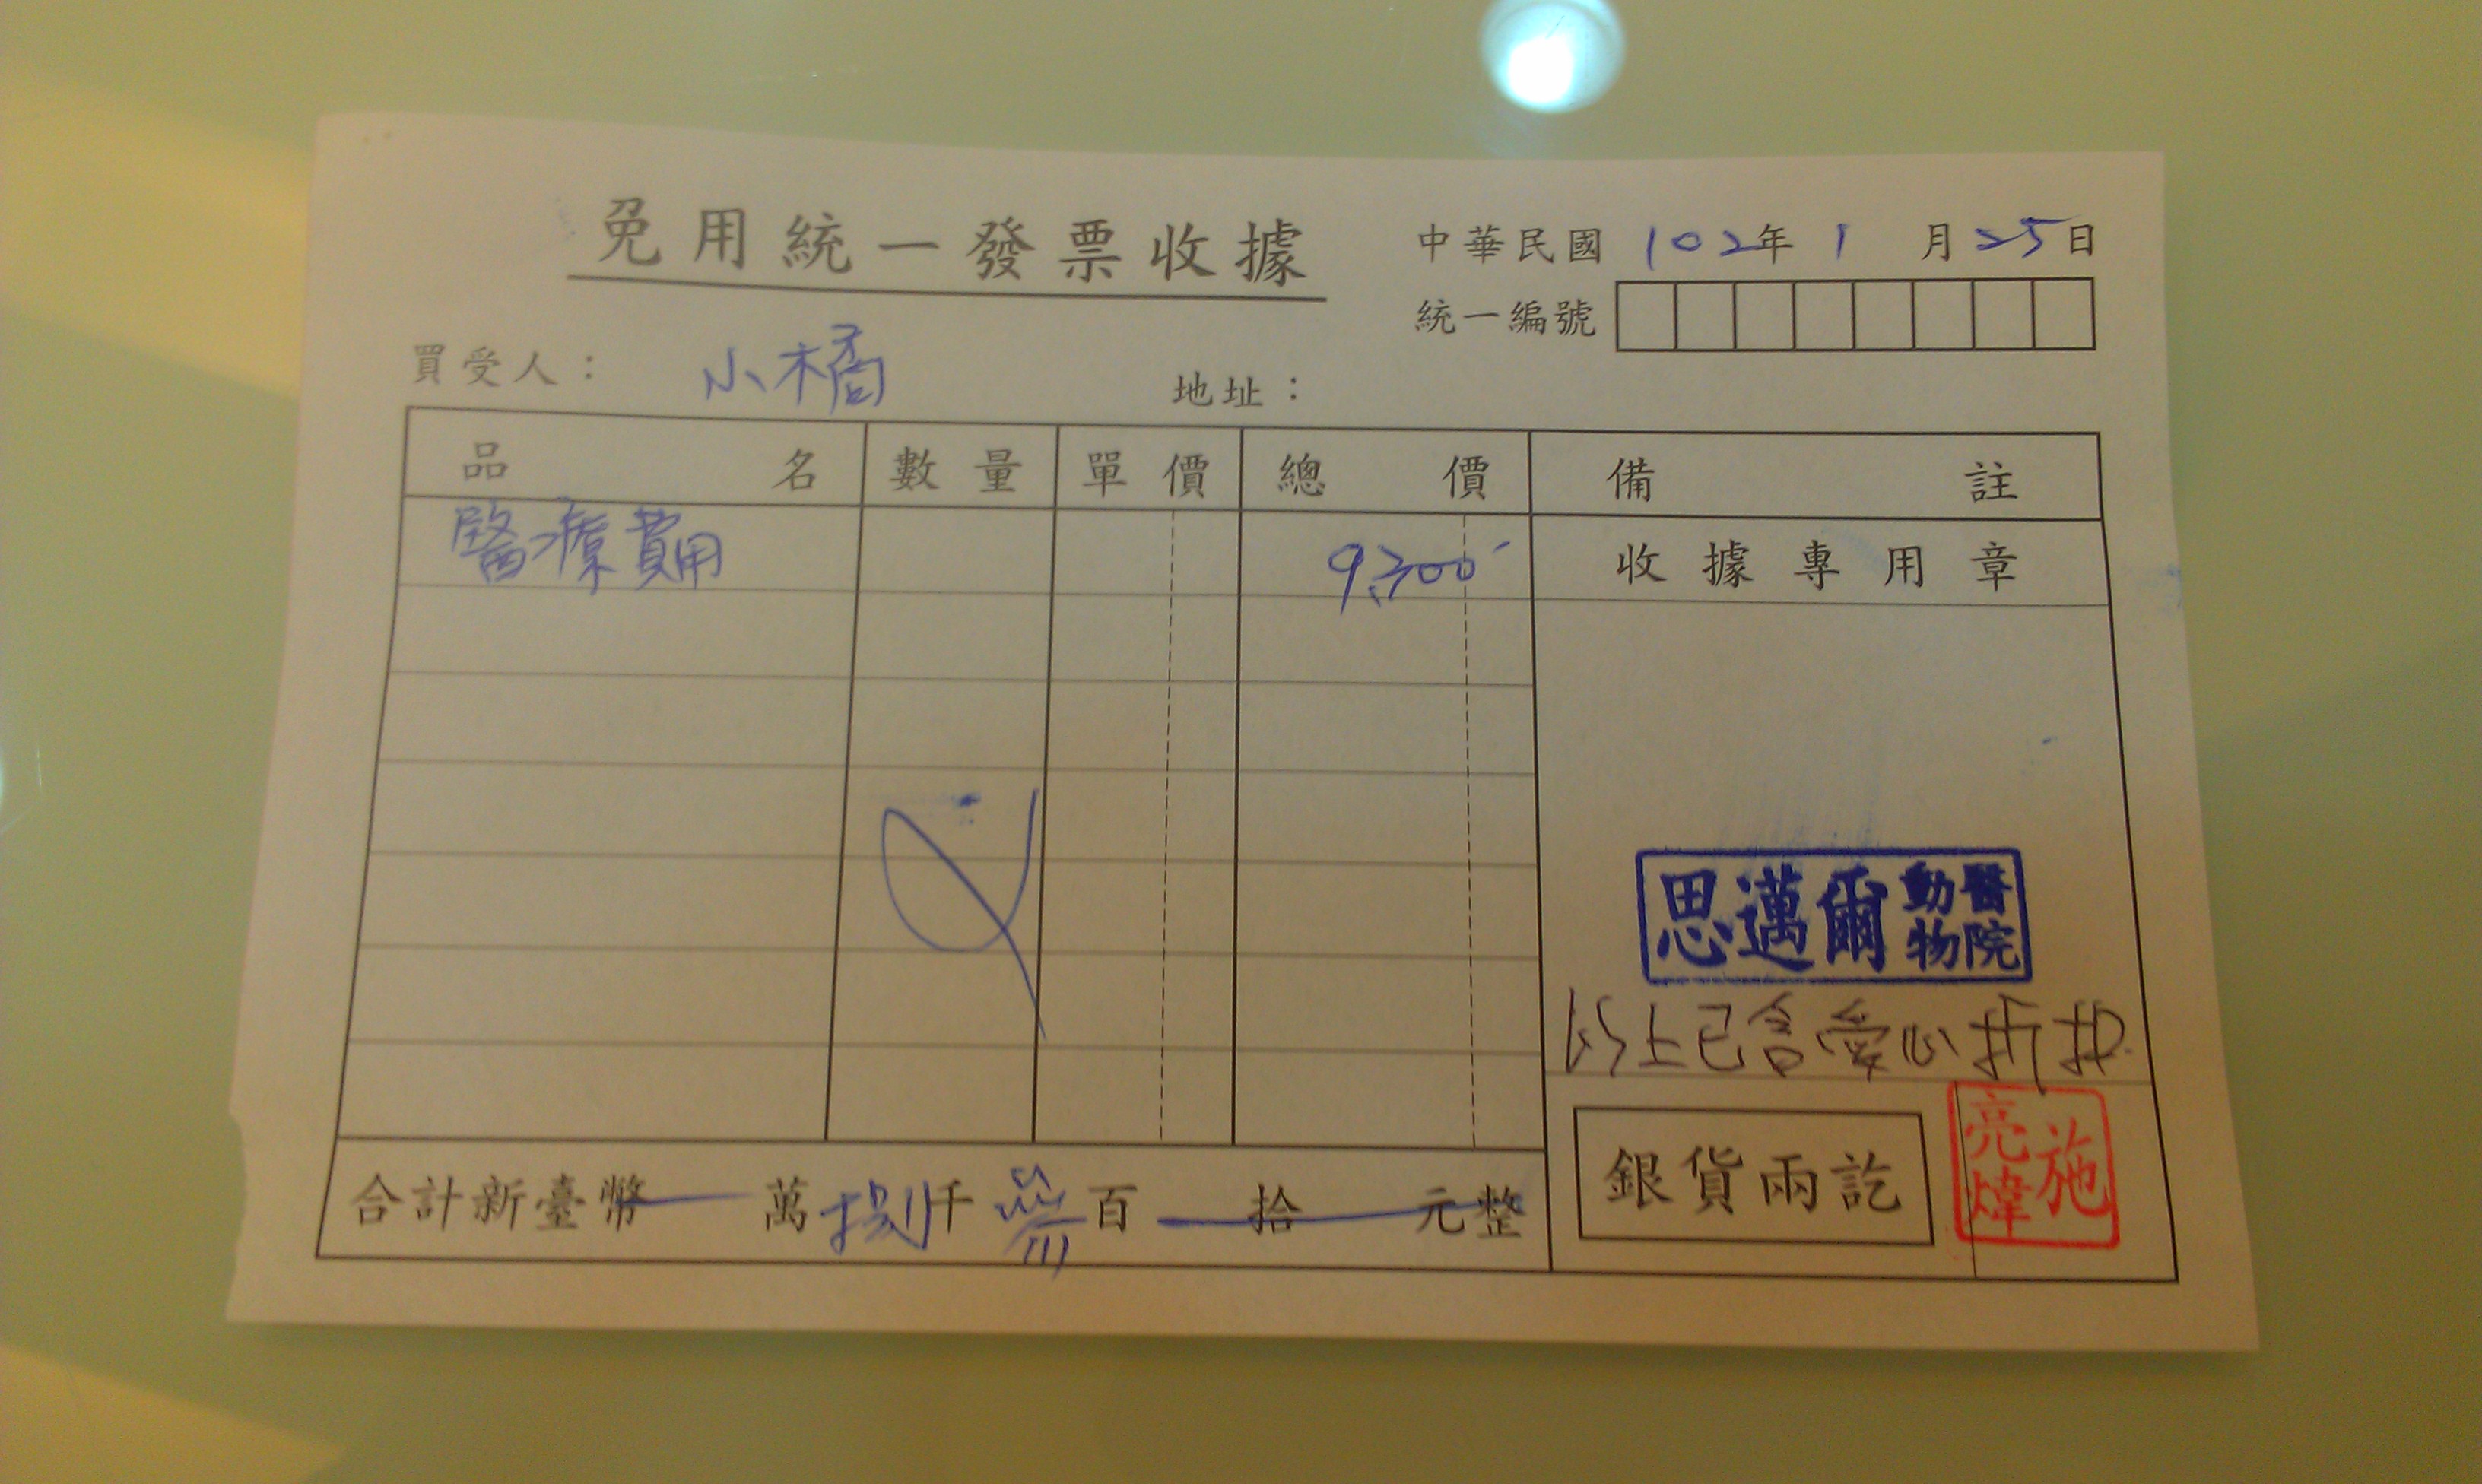 免用統一發票收據
中華民國 102年 1 月 25日
統一編號
買受人： 小橘
地址：
品名 數量 單價 總價 備註
醫療費用 9,300
收據專用章
思邁爾動物醫院
以上已含愛心折扣.
銀貨兩訖
施亮煒
合計新臺幣 萬 捌千 叁百 拾 元整